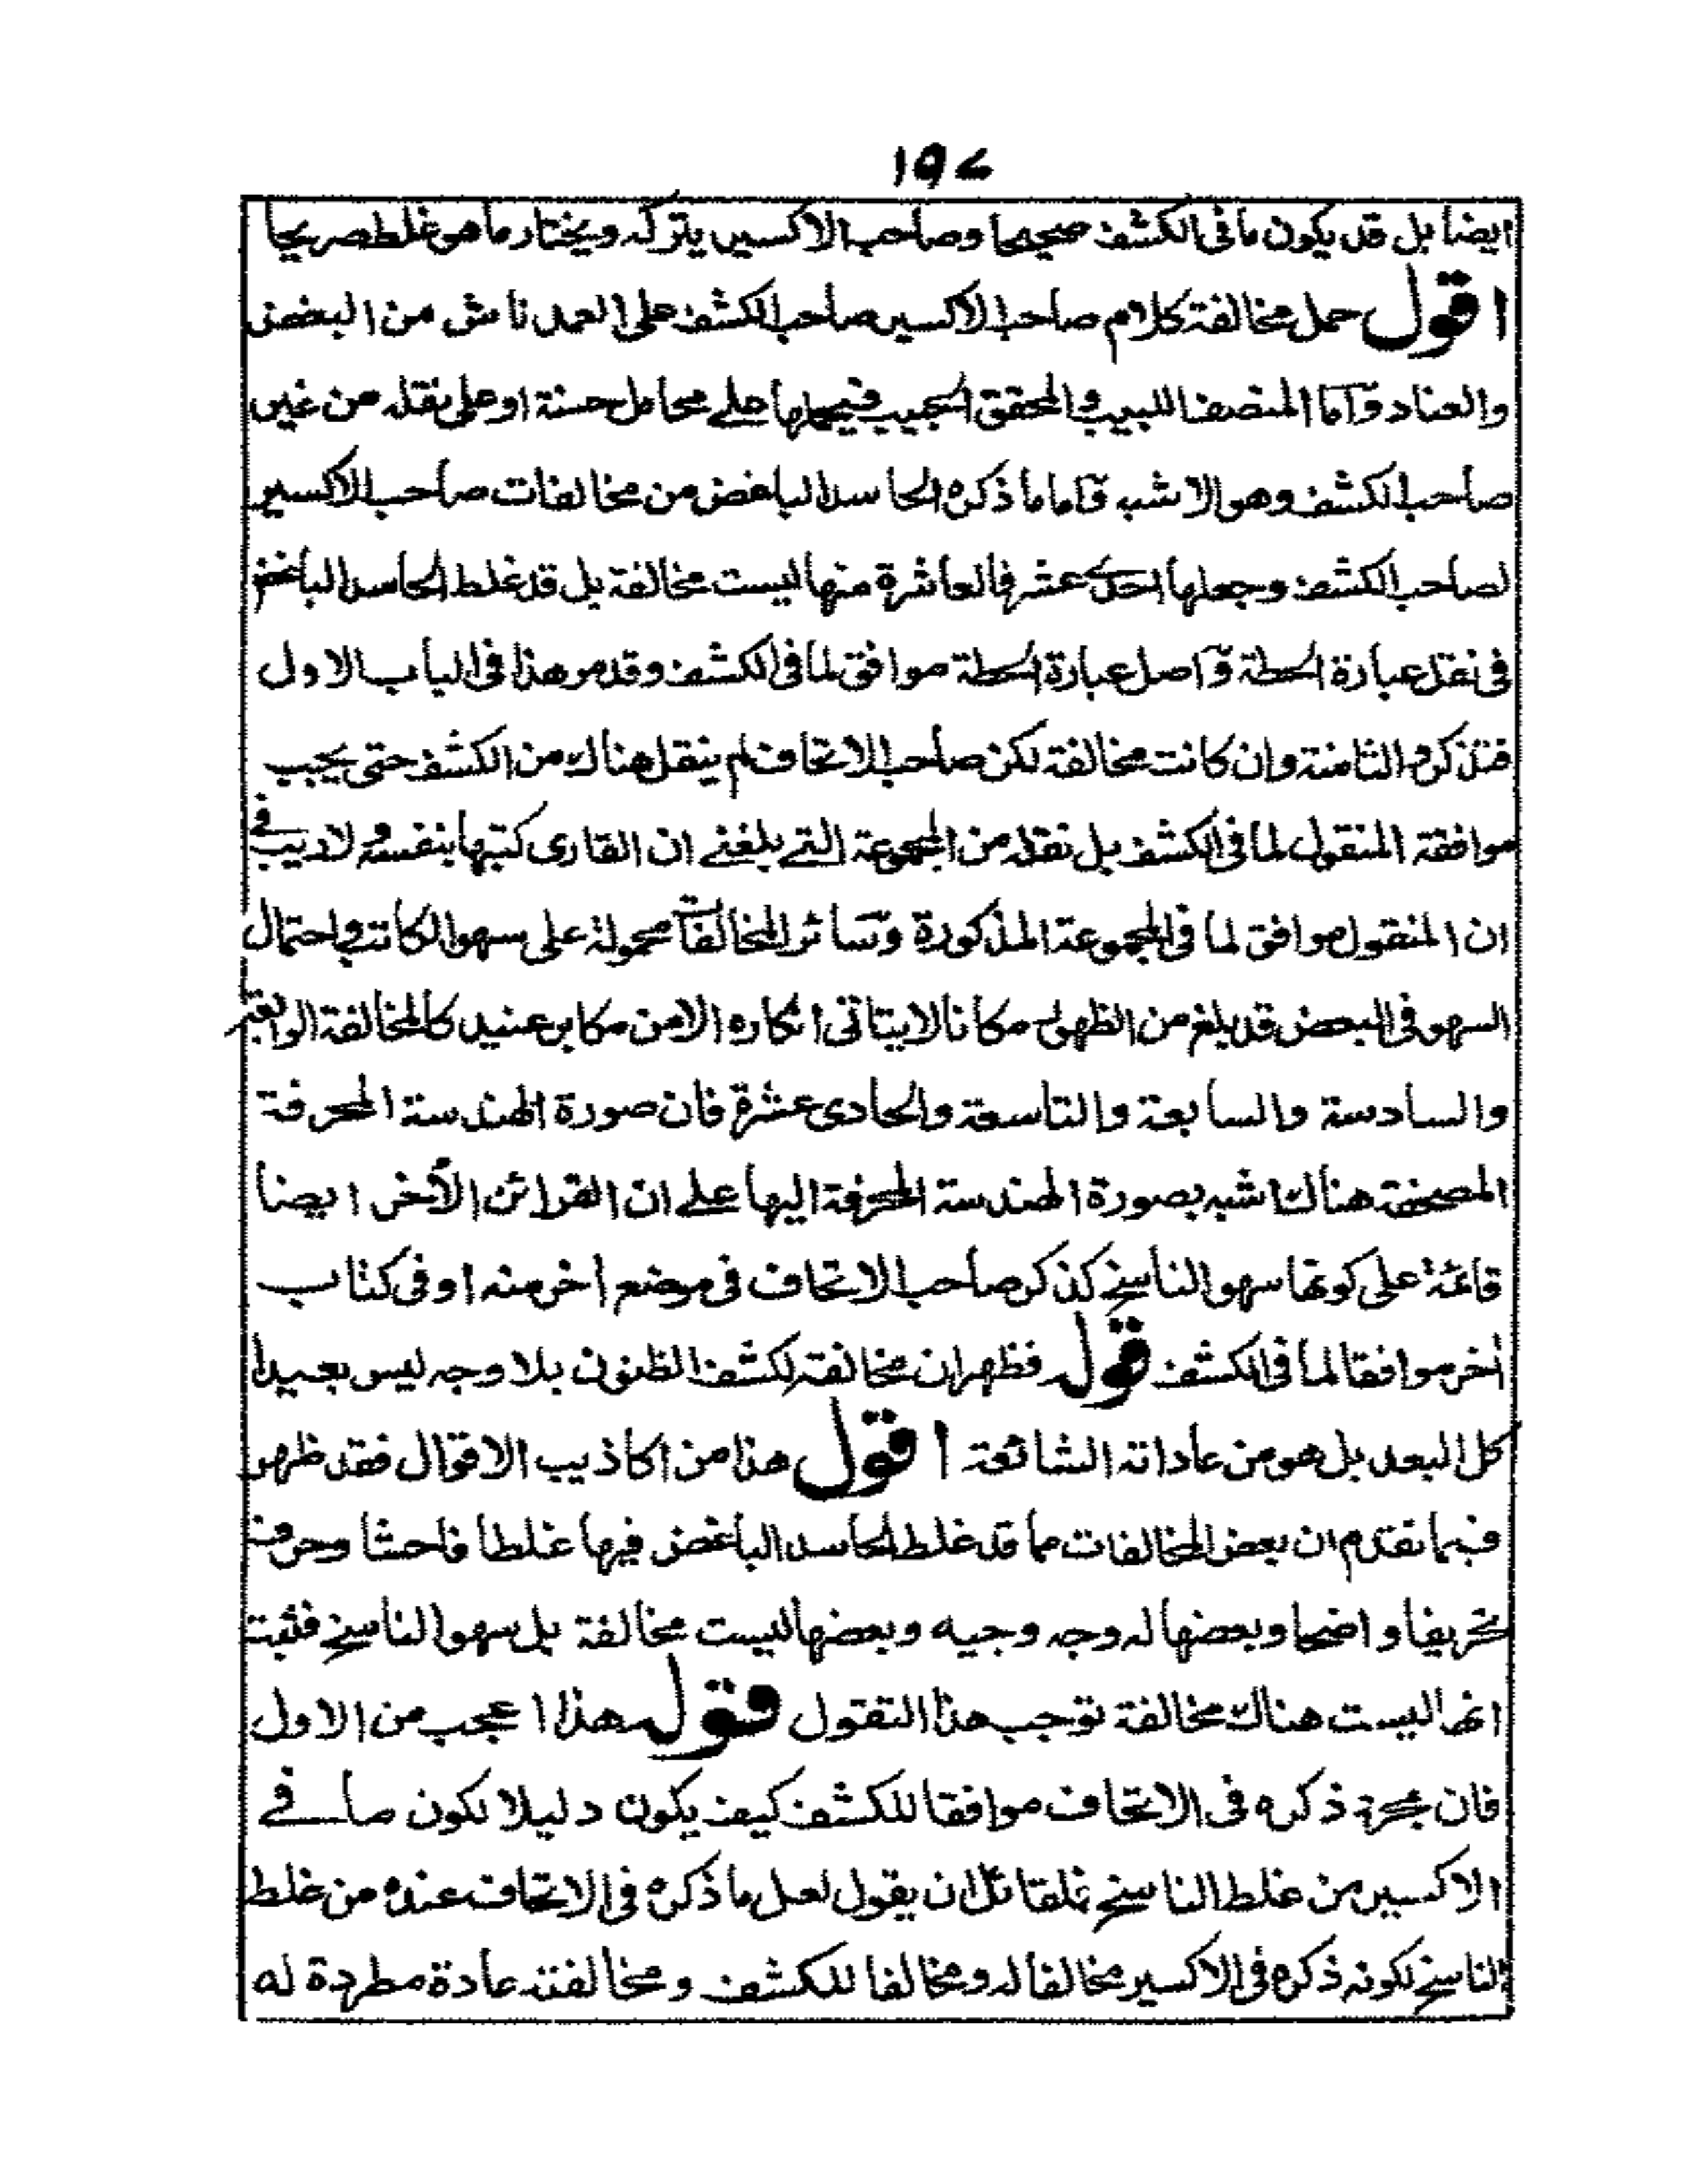 ١٩٧
ايضا بل قد يكون ما فى الكشف صحيحا وصاحب الاكسير يتركه ويختار ما هو غلط صريحا
اقول حمل مخالفة كلام صاحب الاكسير صاحب الكشف على العمد ناش من البغض
والعناد وآما المنصف اللبيب والمحقق العجيب فيحملها علے محامل حسنة او على نقله من غير
صاحب الكشف وهو الاشبه وآما ما ذكره الحاسد الباغض من مخالفات صاحب الاكسير
لصاحب الكشف وجعلها احدى عشر فالعاشرة منها ليست مخالفة بل قد غلط الحاسد الباغض
فى نقل عبارة الحطة وآصل عبارة الحطة موافق لما فى الكشف وقد مر هذا فى الباب الاول
فتذكره والثامنة وان كانت مخالفة لكن صاحب الاتحاف لم ينقل هناك من الكشف حتى يجب
موافقة المنقول لما فى الكشف بل نقله من المجموعة التے بلغنے ان القارى كتبها بنفسه ولا ريب فے
ان المنقول موافق لما فى المجموعة المذكورة وسائر المخالفات محمولة على سهو الكاتب واحتمال
السهو فى البعض قد بلغ من الظهور مكانا لا يتاتى انكاره الا من مكابر عنيد كالمخالفة الرابعة
والسادسة والسابعة والتاسعة والحادى عشرة فان صورة الهندسة المحرفة
المصحفة هناك اشبه بصورة الهندسة المحرفة اليها علے ان القرائن الأخر ايضا
قائمة على كونها سهو الناسخ كذكر صاحب الاتحاف فى موضع اخر منه او فى كتاب
اخر موافقا لما فى الكشف قوله فظهر ان مخالفته لكشف الظنون بلا وجه ليس بعيدا
كل البعد بل هو من عاداته الشائعة اقول هذا من اكاذيب الاقوال فقد ظهر
فيما تقدم ان بعض المخالفات مما قد غلط الحاسد الباغض فيها غلطا فاحشا وحرف
تحريفا واضحا وبعضها له وجه وجيه وبعضها ليست مخالفة بل سهو الناسخ فثبت
انها ليست هناك مخالفة توجب هذا التقول قوله هذا اعجب من الاول
فان مجرد ذكره فى الاتحاف موافقا للكشف كيف يكون دليلا لكون ما فے
الاكسير من غلط الناسخ فلقائل ان يقول لعل ما ذكره فى الاتحاف عنده من غلط
الناسخ لكونه ذكره فى الاكسير مخالفا له ومخالفا للكشف ومخالفته عادة مطردة له